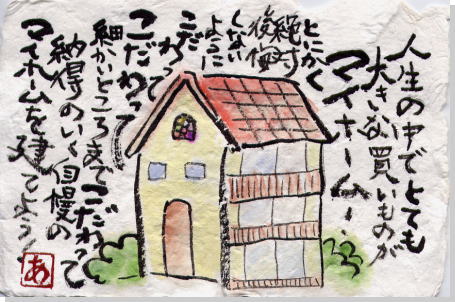 人生の中でとても
大きな買いものが
マイホーム!
とにかく
絶対
後悔
しない
ように
こだ
わって
こだわって
細かいところまでこだわって
納得のいく自慢の
マイホームを建てよう!
あ